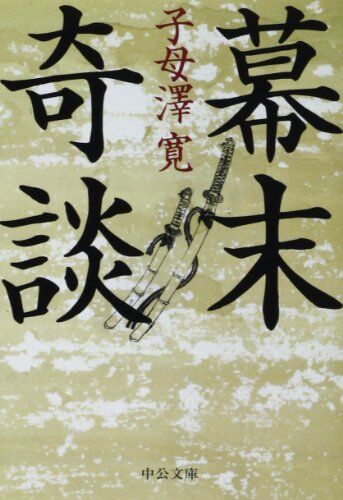 幕末
奇談
子母澤寛
中公文庫